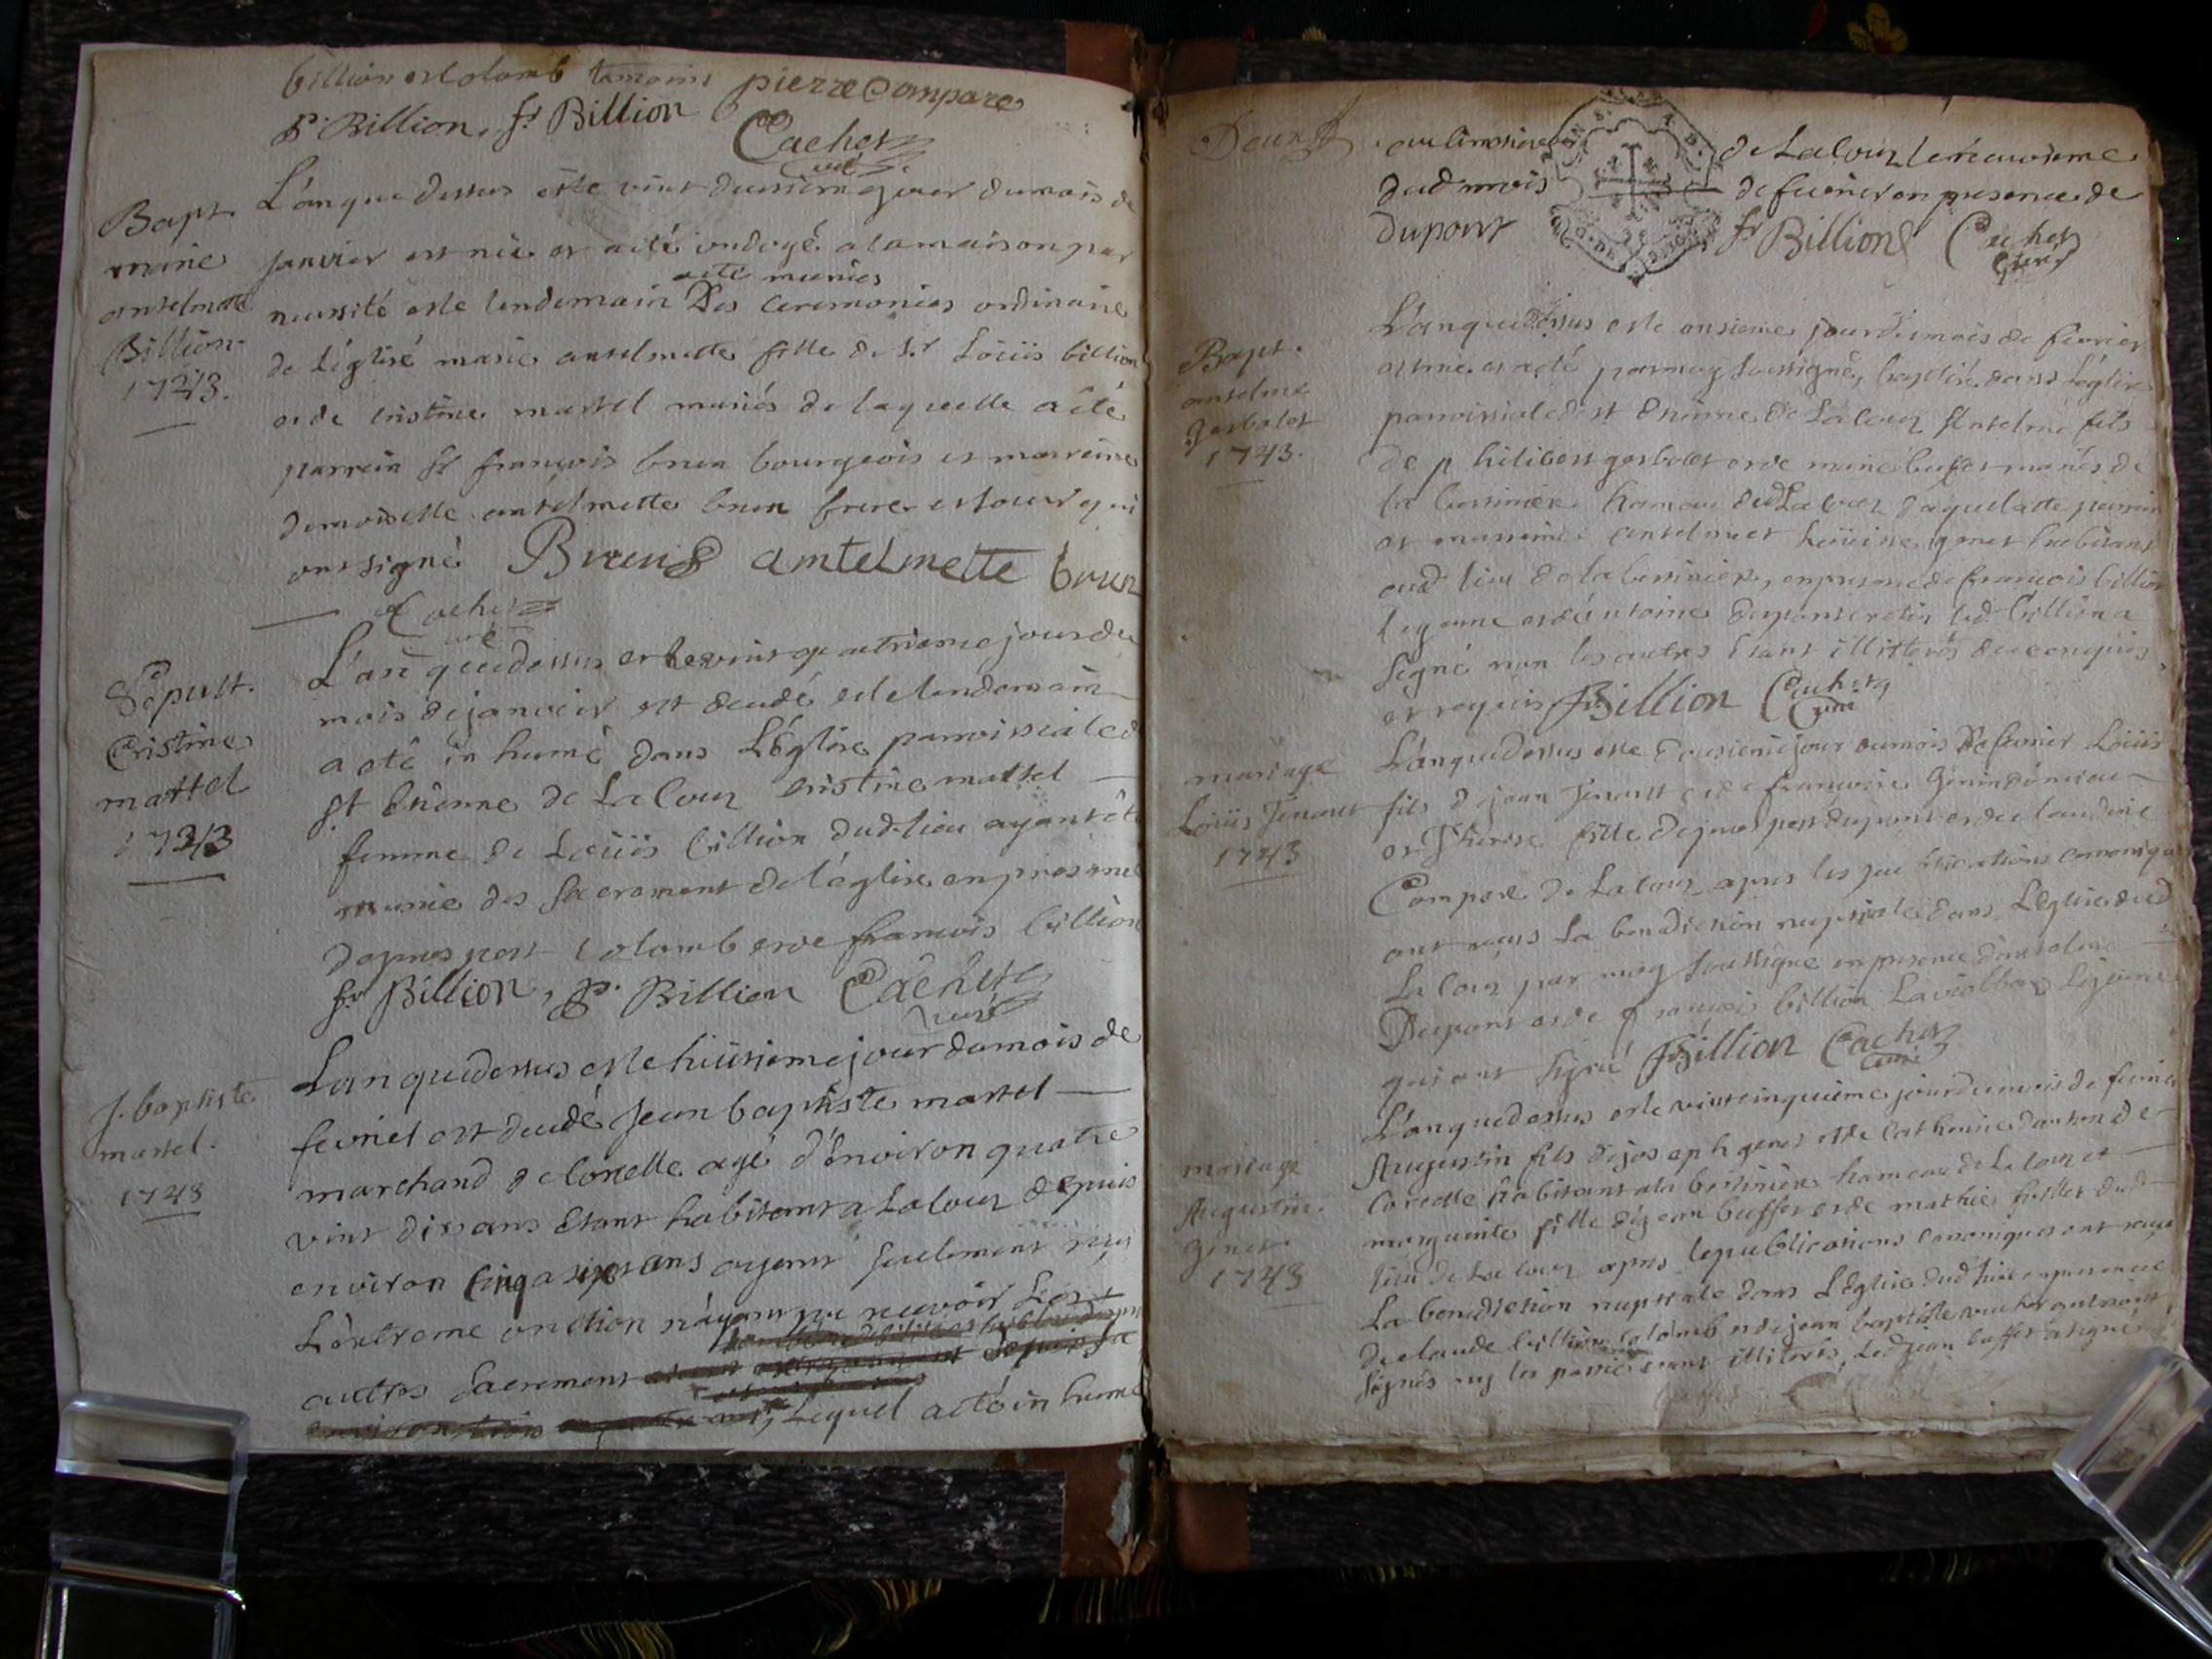 billion et Colomb temoins pierre Compare
P. Billion, fr Billion
Cachet
curé
Bapt.
marie
antelmette
Billion.
1743.
L'an que dessus et le vint deuxieme jour du mois de
janvier est née et a eté ondoyé a la maison par
necessité et le lendemain a eté munies Des ceremonies ordinaire
de l'église marie antelmette fille de Sr Loüis billion
et de cristine martel mariés de laquelle a été
parrein Sr françois brun bourgeois et marreine
demoiselle antelmette brun frere et soeur qui
ont signé Brun antelmette brun
Cachet
curé
Sepult.
Cristine
mattel
1743
L'an que dessus et le vint quatrieme jour du
mois de janvier est decedé et le lendemain
a eté in humé dans L'église parroissialle d
St Etienne de La Coux cristine mattel
femme de Loüis billion dud. lieu ayant eté
munie des sacrement de l'église en presence
de prospert Colomb et de francois billion
fr Billion, P. Billion Cachet
curé
J. baptiste
martel.
1743
L'an que dessus et le hüitieme jour du mois de
fevrier est decedé jean baptiste martel
marchand de Corcelle agé d'environ quatre
vint dix ans Etant habitant a La Coux depuis
environ cinq a six ans ayant seulement reçu
L'extreme onction n'ayant pu recevoir Les
autres sacrement
lequel a eté in humé
Deux
au cimetiere de La Coux le neuvieme
dud. mois de fevrier en presence de
Dupont fr Billion Cachet
curé
Bapt.
antelme
gerbolet
1743.
L'an que dessus et le onzieme jour du mois de fevrier
est née et a eté par moy soussigné, baptisé dans L'église
parroissiale de St Etienne de La Coux Antelme fils
de philibert gerbolet et de marie buffet mariés de
la bertiniere hameau dud La Coux Laquel atté parrain
et marreine antelme et genet habitant
aud lieu de la bertiniere, en presence de francois billion
le jeune et d'antoine Dupont led. billion a
signé non les autres Etant illitterés de ce enquis
et requis fr Billion Cachet
curé
mariage
Loüis Jenout
1743
L'an que dessus et le jour du mois de fevrier Loüis
fils de jean Jenout et de francoise
et Therese fille de prospert dupont et de claudine
Compare de La Coux apres les publications canoniques
ont reçus La benediction nuptiale dans L'église dud
La Coux par moy soussigné en presence d'antelme
Dupont et de francois billion Le jeune
qui ont signé fr Billion Cachet
curé
mariage
Augustin
Genet
1743
L'an que dessus et le vint cinquieme jour du mois de fevrier
Augustin fils de joseph genet et de Catherine de
Corcelle habitant a la bertiniere hameau de La Coux et
marguerite fille de jean buffet et de mathie dud
lieu de La Coux apres les publications canoniques ont reçu
La benediction nuptiale dans L'église dud lieu en presence
de claude billion colomb et de jean baptiste
signés ny les parties etant illiterés, Led jean buffet a signé